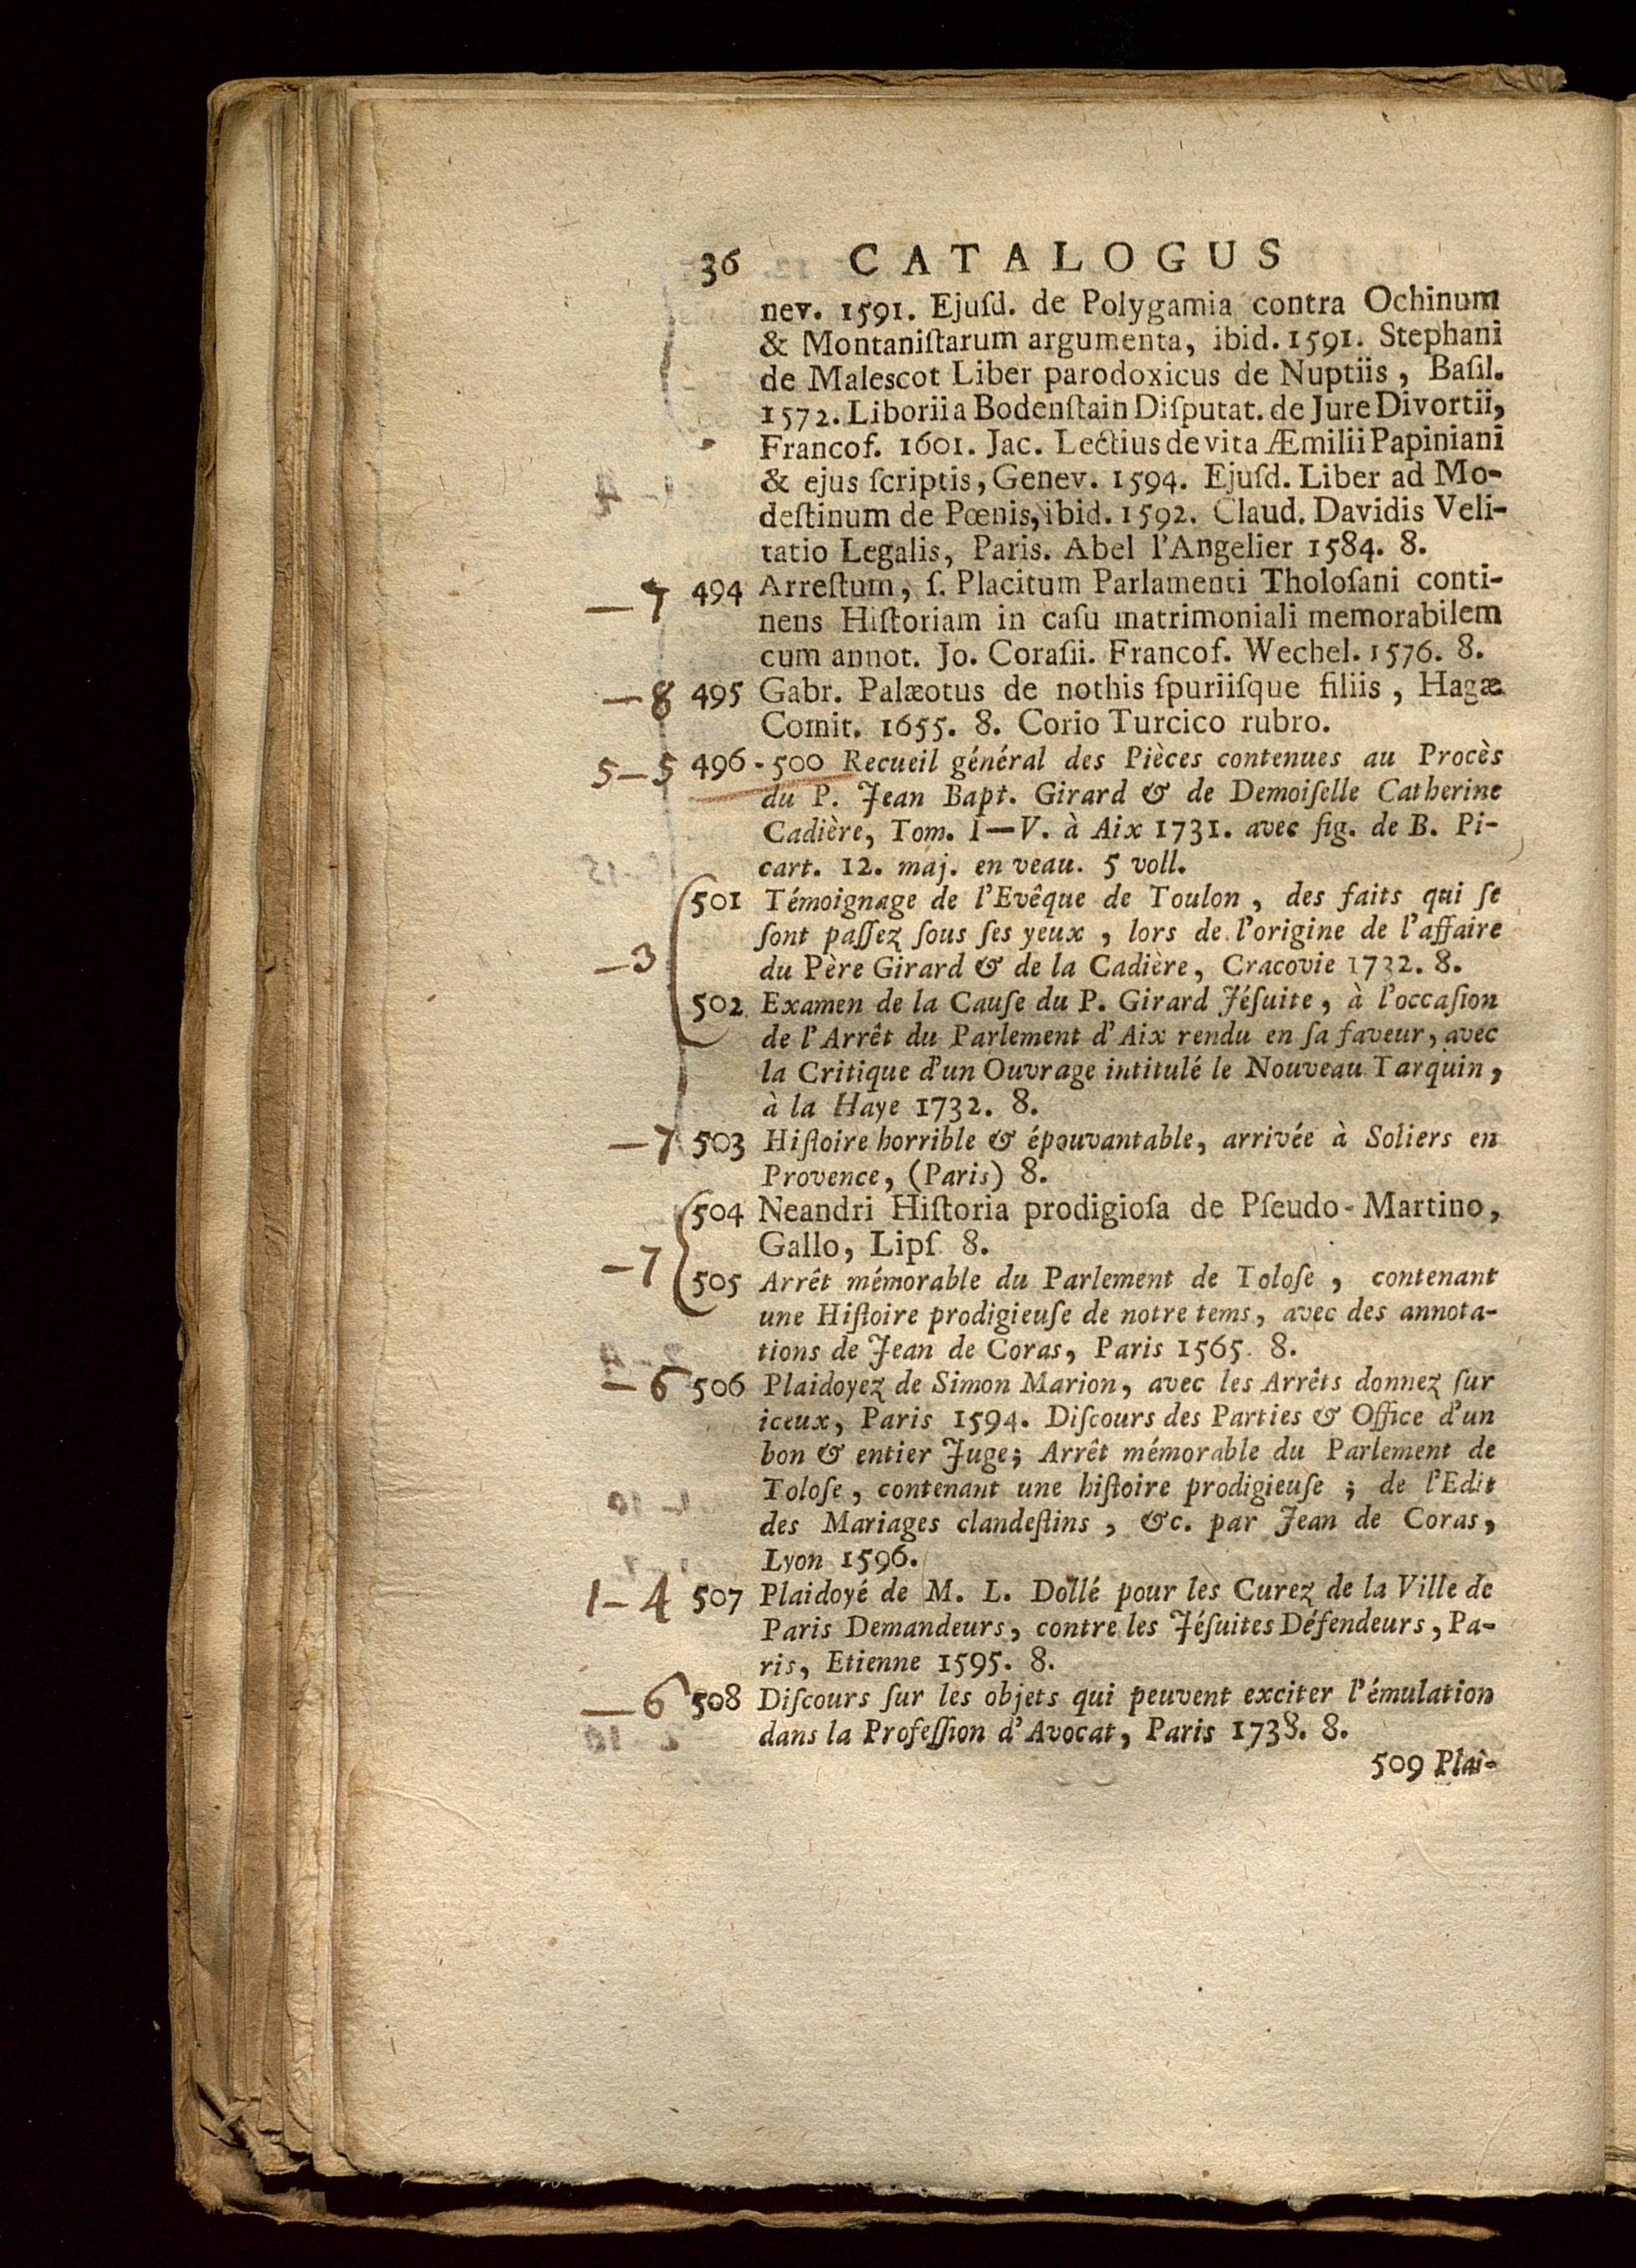 36 CATALOGUS
nev. 1591. Ejuſd. de Polygamia contra Ochinum
& Montaniſtarum argumenta, ibid. 1591. Stephani
de Malescot Liber parodoxicus de Nuptiis, Baſil.
1572. Liborii a Bodenſtain Diſputat. de Jure Divortii,
Francof. 1601. Jac. Lectius de vita Æmilii Papiniani
& ejus ſcriptis, Genev. 1594. Ejuſd. Liber ad Mo-
deſtinum de Pœnis, ibid. 1592. Claud. Davidis Veli-
tatio Legalis, Paris. Abel l'Angelier 1584. 8.
—7 494 Arreſtum, ſ. Placitum Parlamenti Tholoſani conti-
nens Hiſtoriam in caſu matrimoniali memorabilem
cum annot. Jo. Coraſii. Francof. Wechel. 1576. 8.
—8 495 Gabr. Palæotus de nothis ſpuriiſque filiis, Hagæ
Comit. 1655. 8. Corio Turcico rubro.
5—5 496-500 Recueil général des Pièces contenues au Procès
du P. Jean Bapt. Girard & de Demoiſelle Catherine
Cadière, Tom. I—V. à Aix 1731. avec fig. de B. Pi-
cart. 12. maj. en veau. 5 voll.
501 Témoignage de l'Evêque de Toulon, des faits qui ſe
ſont paſſez ſous ſes yeux, lors de l'origine de l'affaire
—3 du Père Girard & de la Cadière, Cracovie 1732. 8.
502 Examen de la Cauſe du P. Girard Jéſuite, à l'occaſion
de l'Arrêt du Parlement d'Aix rendu en ſa faveur, avec
la Critique d'un Ouvrage intitulé le Nouveau Tarquin,
à la Haye 1732. 8.
—7 503 Hiſtoire horrible & épouvantable, arrivée à Soliers en
Provence, (Paris) 8.
504 Neandri Hiſtoria prodigioſa de Pſeudo-Martino,
Gallo, Lipſ. 8.
—7 505 Arrêt mémorable du Parlement de Toloſe, contenant
une Hiſtoire prodigieuſe de notre tems, avec des annota-
tions de Jean de Coras, Paris 1565. 8.
—6 506 Plaidoyez de Simon Marion, avec les Arrêts donnez ſur
iceux, Paris 1594. Diſcours des Parties & Office d'un
bon & entier Juge; Arrêt mémorable du Parlement de
Toloſe, contenant une hiſtoire prodigieuſe; de l'Edit
des Mariages clandeſtins, &c. par Jean de Coras,
Lyon 1596.
1—4 507 Plaidoyé de M. L. Dollé pour les Curez de la Ville de
Paris Demandeurs, contre les Jéſuites Défendeurs, Pa-
ris, Etienne 1595. 8.
—6 508 Diſcours ſur les objets qui peuvent exciter l'émulation
dans la Profeſſion d'Avocat, Paris 1738. 8.
509 Plai-